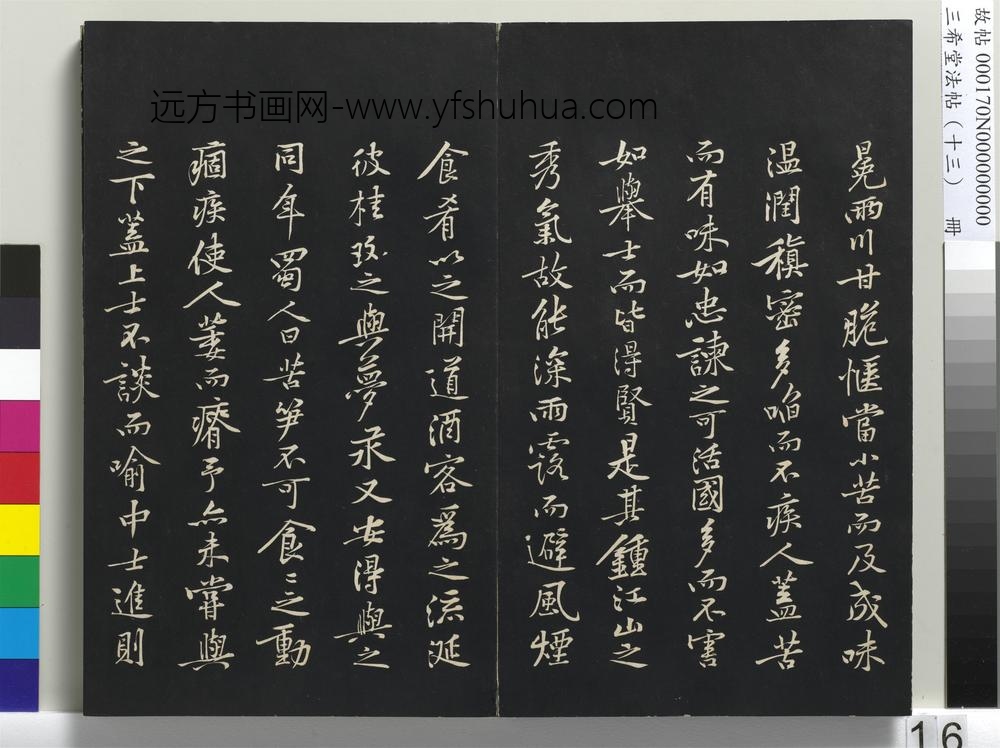 远方书画网-www.yfshuhua.com
冕兩川甘脆愜當小苦而及成味
溫潤稹密多啗而不疾人蓋苦
而有味如忠諫之可活國多而不害
如舉士而皆得賢是其鍾江山之
秀氣故能深雨露而避風煙
食肴以之開道酒客為之流涎
彼桂玫之與夢汞又安得與之
同年蜀人曰苦笋不可食食之動
痼疾使人萎而瘠予亦未嘗與
之下蓋上士不談而喻中士進則
故帖 000170N000000000
三希堂法帖（十三） 冊
16